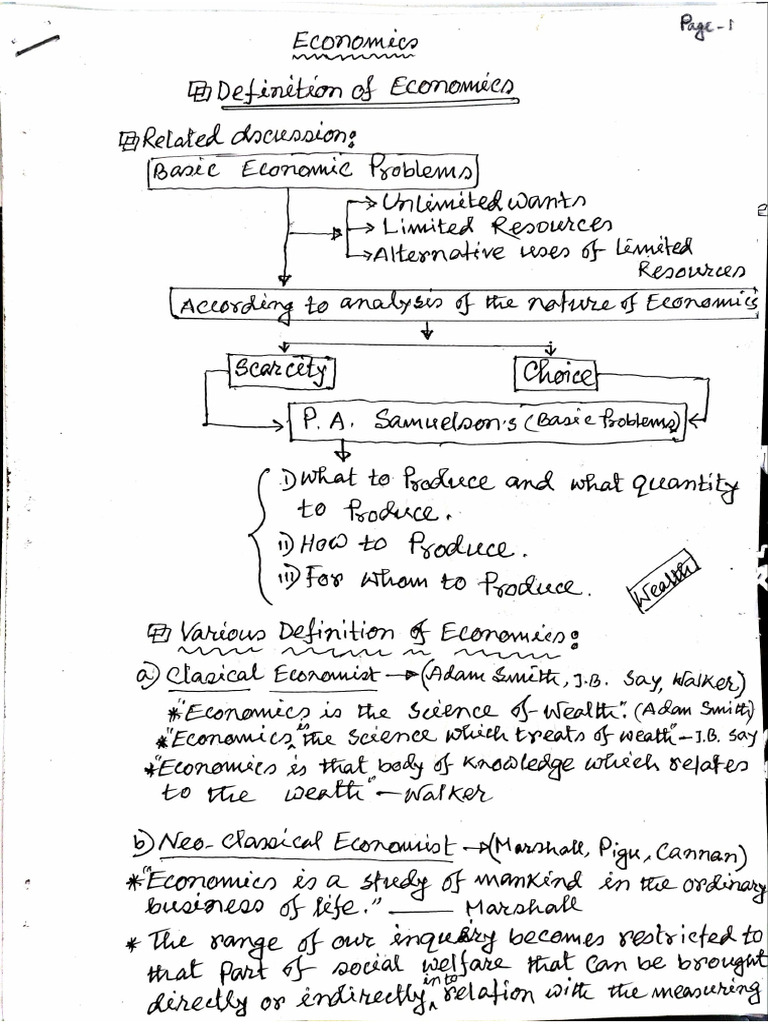 Page-1
Economics
Definition of Economics
Related discussion:
Basic Economic Problems
Unlimited wants
Limited Resources
Alternative uses of Limited
Resources
According to analysis of the nature of Economics
Scarcity
Choice
P. A. Samuelson's (Basic Problems)
i) What to Produce and what quantity
to Produce.
ii) How to Produce.
iii) For whom to Produce.
Wealth
Various Definition of Economics:
a) Clasical Economist → (Adam Smith, J.B. Say, Walker)
* "Economics is the Science of Wealth". (Adam Smith)
* "Economics is the Science which treats of weath" - J.B. Say
* "Economics is that body of Knowledge which relates
to the weath" - Walker
b) Neo-Classical Economist → (Marshall, Pigu, Cannan)
* "Economics is a study of mankind in the ordinary
business of life." — Marshall
* The range of our inquiry becomes restricted to
that Part of social welfare that can be brought
directly or indirectly into relation with the measuring